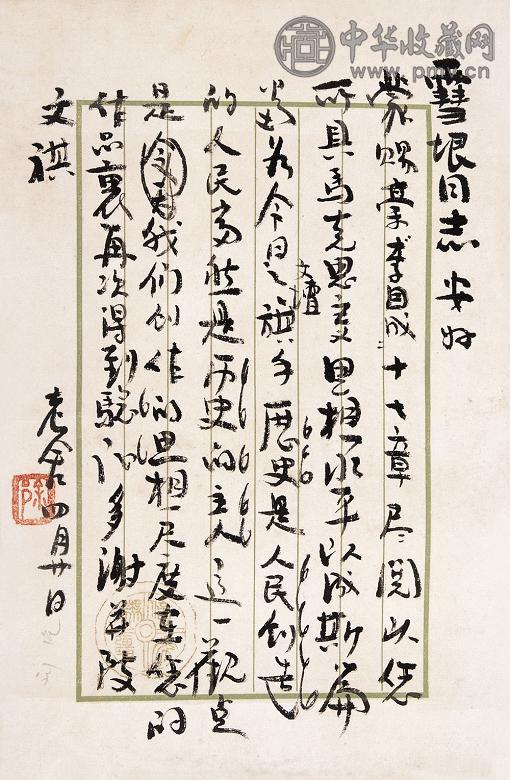 中华收藏网
www.pm.cn
雪垠同志 安好
蒙赐李自成二十七章尽阅以您
所具马克思主义思想水平以成斯篇
当为今日之文坛旗手历史是人民创造
的人民当然是历史的主人这一观点
是今天我们创作的思想尺度在您的
作品里再次得到验证多谢并致
文祺
老舍四月廿日